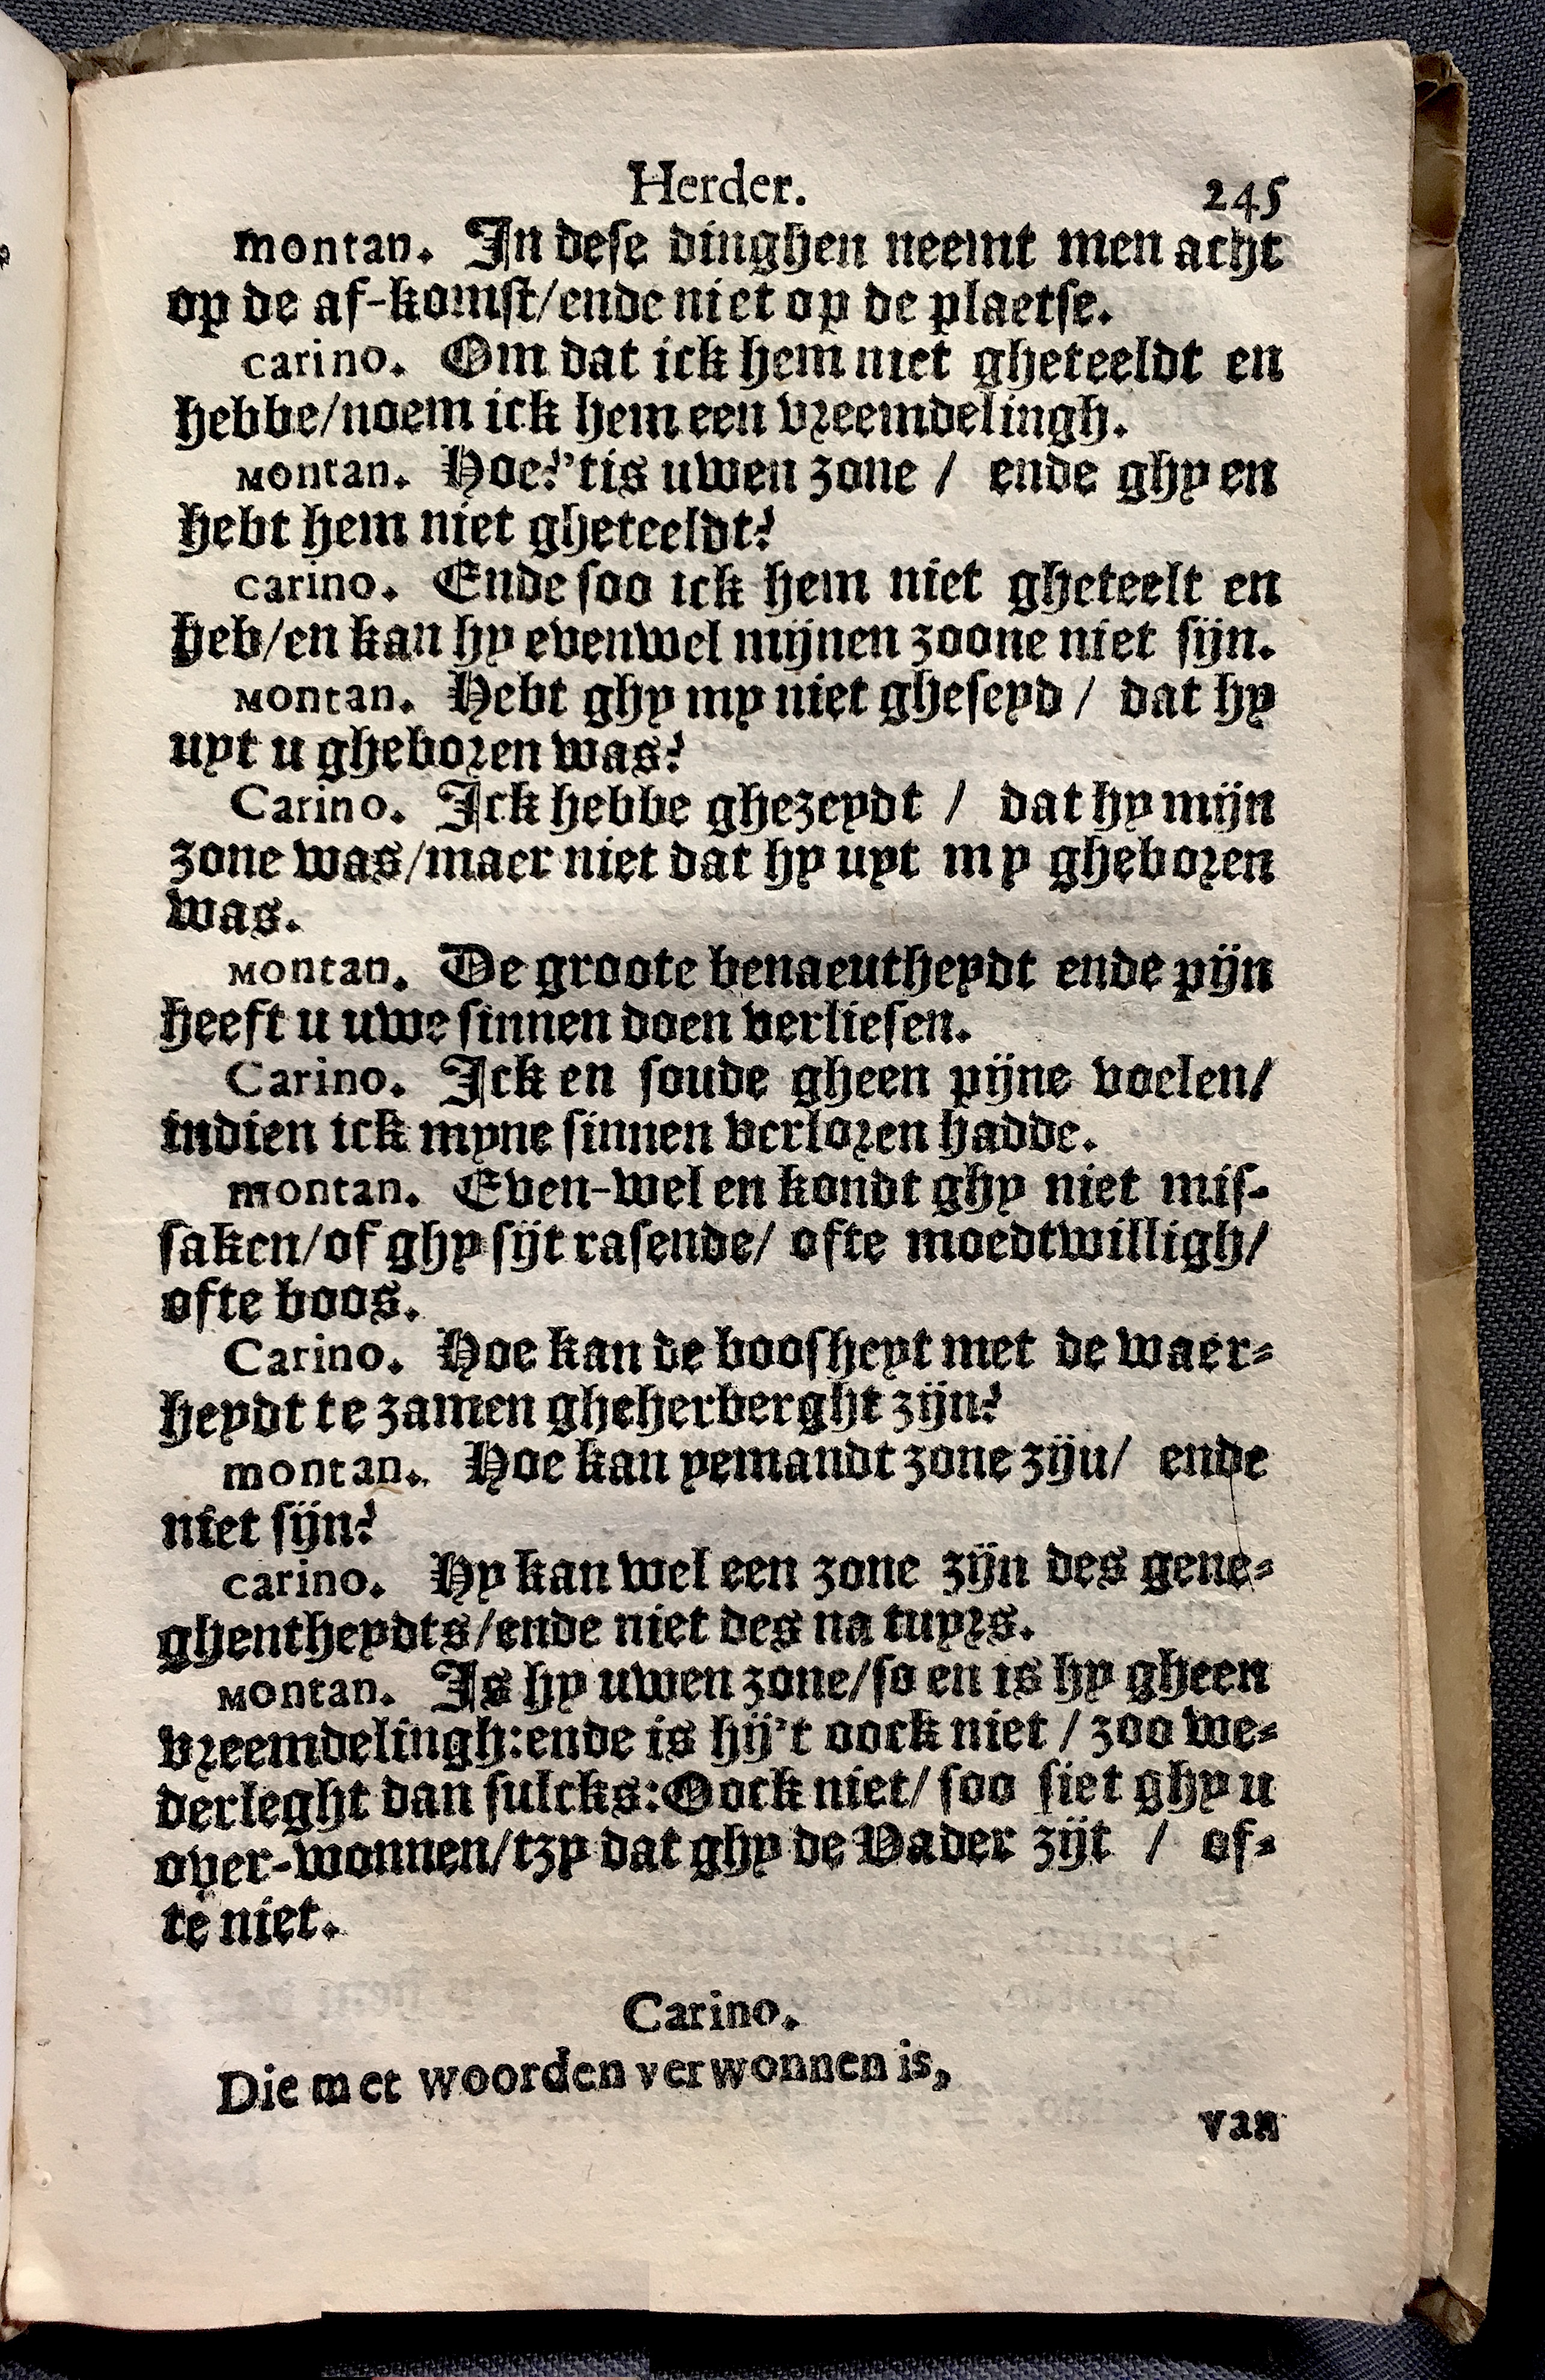 Herder. 245
montan. In dese dinghen neemt men acht
op de af-komst/ende niet op de plaetse.
carino. Om dat ick hem niet gheteeldt en
hebbe/noem ick hem een vreemdelingh.
Montan. Hoe?'tis uwen zone / ende ghy en
hebt hem niet gheteeldt?
carino. Ende soo ick hem niet gheteelt en
heb/en kan hy evenwel mijnen zoone niet sijn.
Montan. Hebt ghy my niet gheseyd / dat hy
uyt u gheboren was?
Carino. Ick hebbe ghezeydt / dat hy mijn
zone was/maer niet dat hy uyt my gheboren
was.
Montan. De groote benaeutheydt ende pijn
heeft u uwe sinnen doen verliesen.
Carino. Ick en soude gheen pijne voelen/
indien ick myne sinnen verloren hadde.
montan. Even-wel en kondt ghy niet mis-
saken/of ghy sijt rasende/ ofte moedtwilligh/
ofte boos.
Carino. Hoe kan de boosheyt met de waer-
heydt te zamen gheherberght zijn?
montan. Hoe kan yemandt zone ziju/ ende
niet sijn?
carino. Hy kan wel een zone zijn des gene-
ghentheydts/ende niet des na tuyrs.
Montan. Is hy uwen zone/so en is hy gheen
vreemdelingh:ende is hij't oock niet / zoo we-
derleght dan sulcks:Oock niet/ soo siet ghy u
over-wonnen/tzy dat ghy de Vader zijt / of-
te niet.
Carino.
Die met woorden verwonnen is,
van